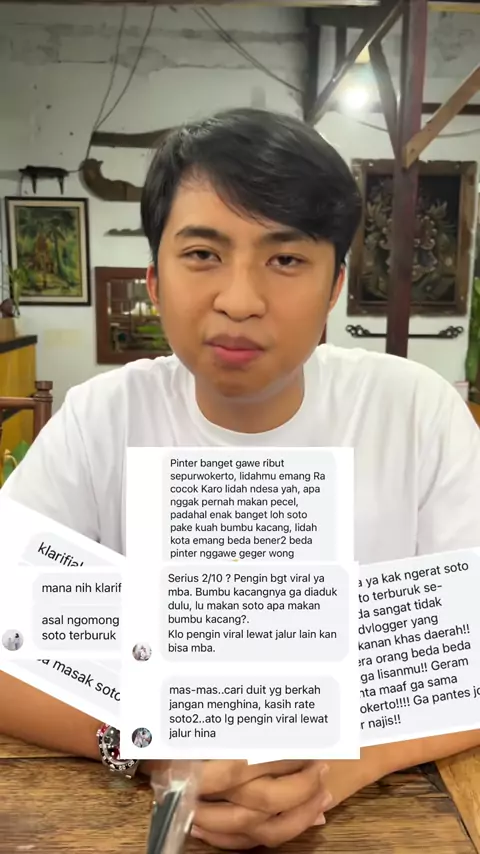 Pinter banget gawe ribut
sepurwokerto, lidahmu emang Ra
cocok Karo lidah ndesa yah, apa
nggak pernah makan pecel,
padahal enak banget loh soto
pake kuah bumbu kacang, lidah
kota emang beda bener2 beda
pinter nggawe geger wong
klarifial
mana nih klarif
asal ngomong
soto terburuk
masak soto
Serius 2/10 ? Pengin bgt viral ya
mba. Bumbu kacangnya ga diaduk
dulu, lu makan soto apa makan
bumbu kacang?.
Klo pengin viral lewat jalur lain kan
bisa mba.
mas-mas..cari duit yg berkah
jangan menghina, kasih rate
soto2..ato lg pengin viral lewat
jalur hina
a ya kak ngerat soto
to terburuk se-
da sangat tidak
dvlogger yang
kanan khas daerah!!
era orang beda beda
ga lisanmu!! Geram
nta maaf ga sama
okerto!!!! Ga pantes jo
r najis!!